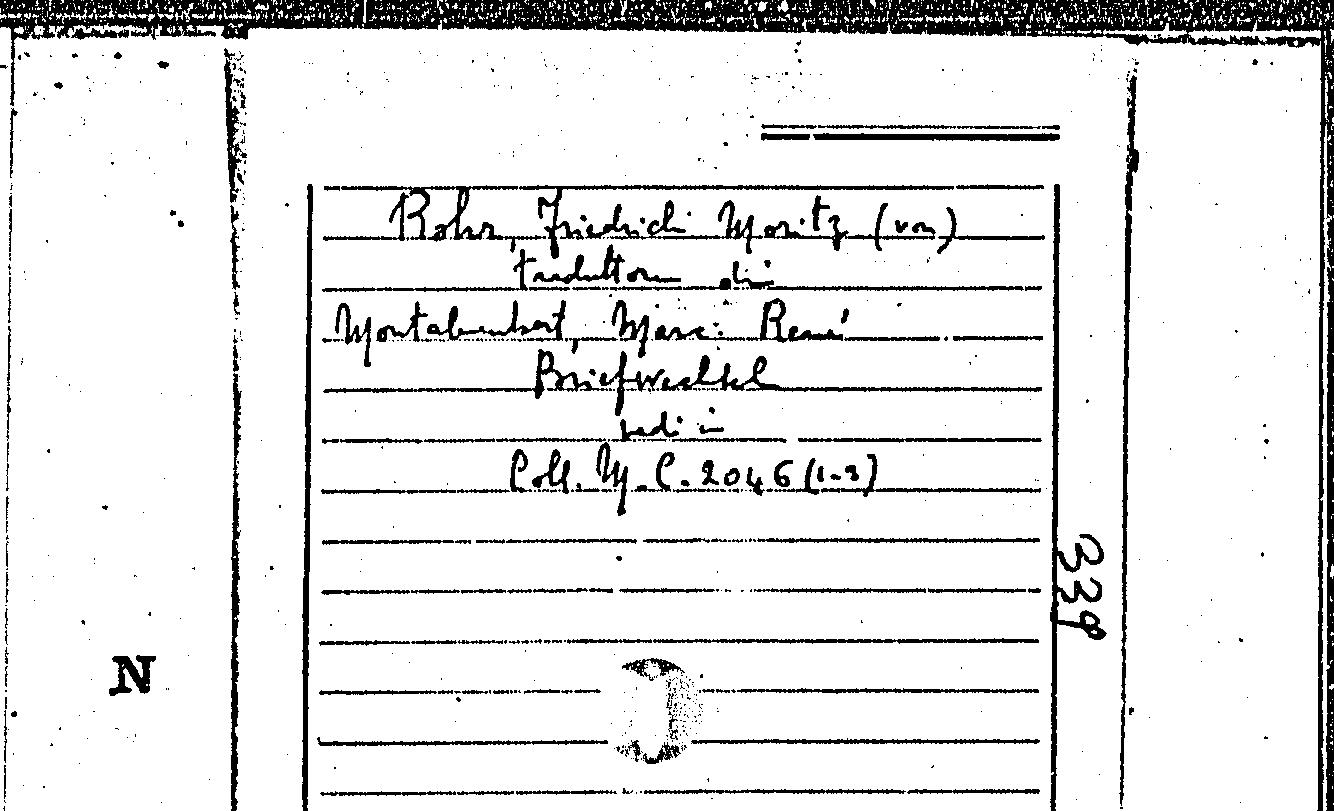 Rohr, Friedrich Moritz (von)
traduttore di
Montalembert, Marc René
Briefwechsel
vedi in
Coll. M. C. 2046 (1-3)
339
N